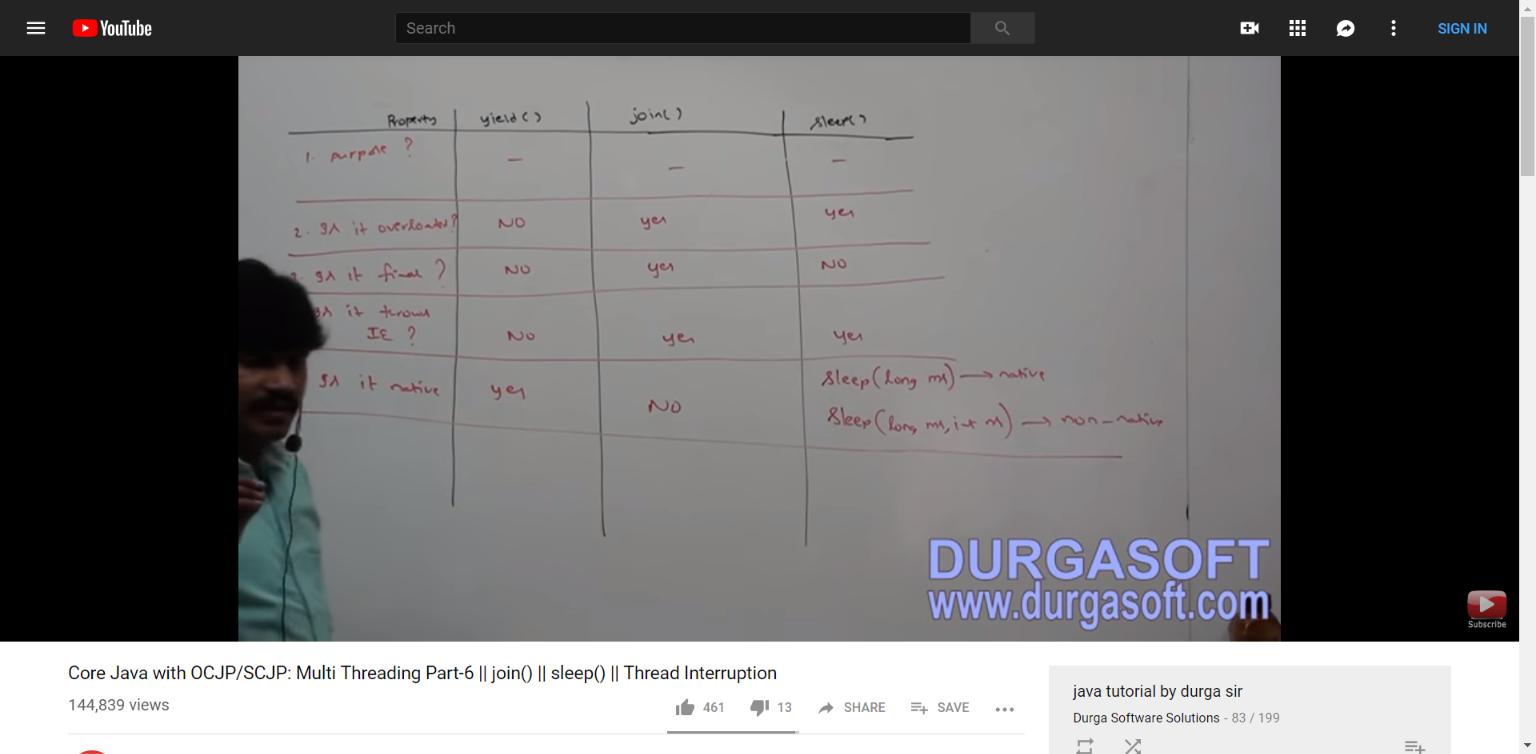 YouTube
Search
SIGN IN
Property yield() join() sleep()
1. purpose ? — — —
2. Is it overloaded? NO yes yes
3. Is it final ? NO yes NO
Is it throws
IE ? No yes yes
Is it native yes NO
sleep(long ms) → native
sleep(long ms, int ns) → non-native
DURGASOFT
www.durgasoft.com
Subscribe
Core Java with OCJP/SCJP: Multi Threading Part-6 || join() || sleep() || Thread Interruption
144,839 views
461 13 SHARE SAVE
java tutorial by durga sir
Durga Software Solutions - 83 / 199